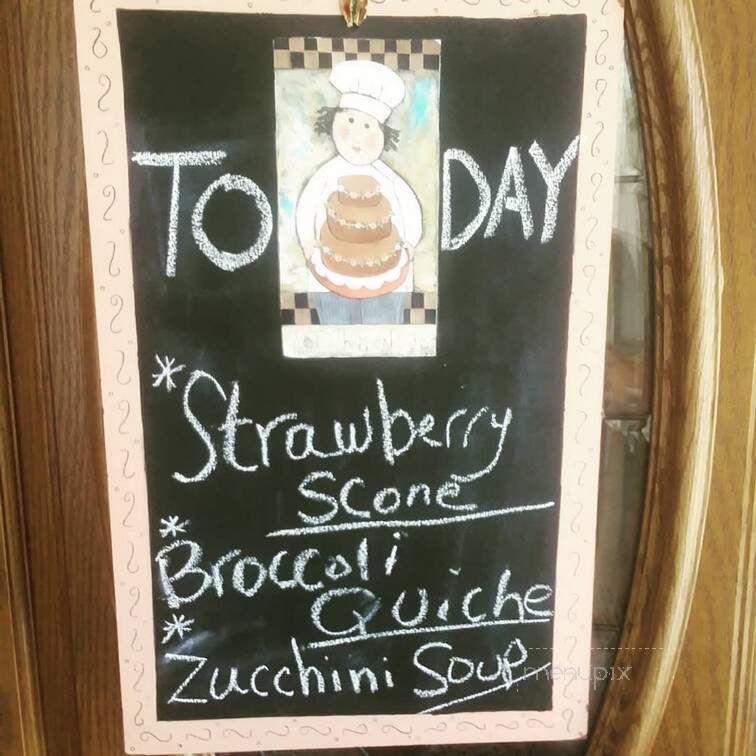 TO DAY
* Strawberry
Scone
* Broccoli
Quiche
* Zucchini Soup
menupix